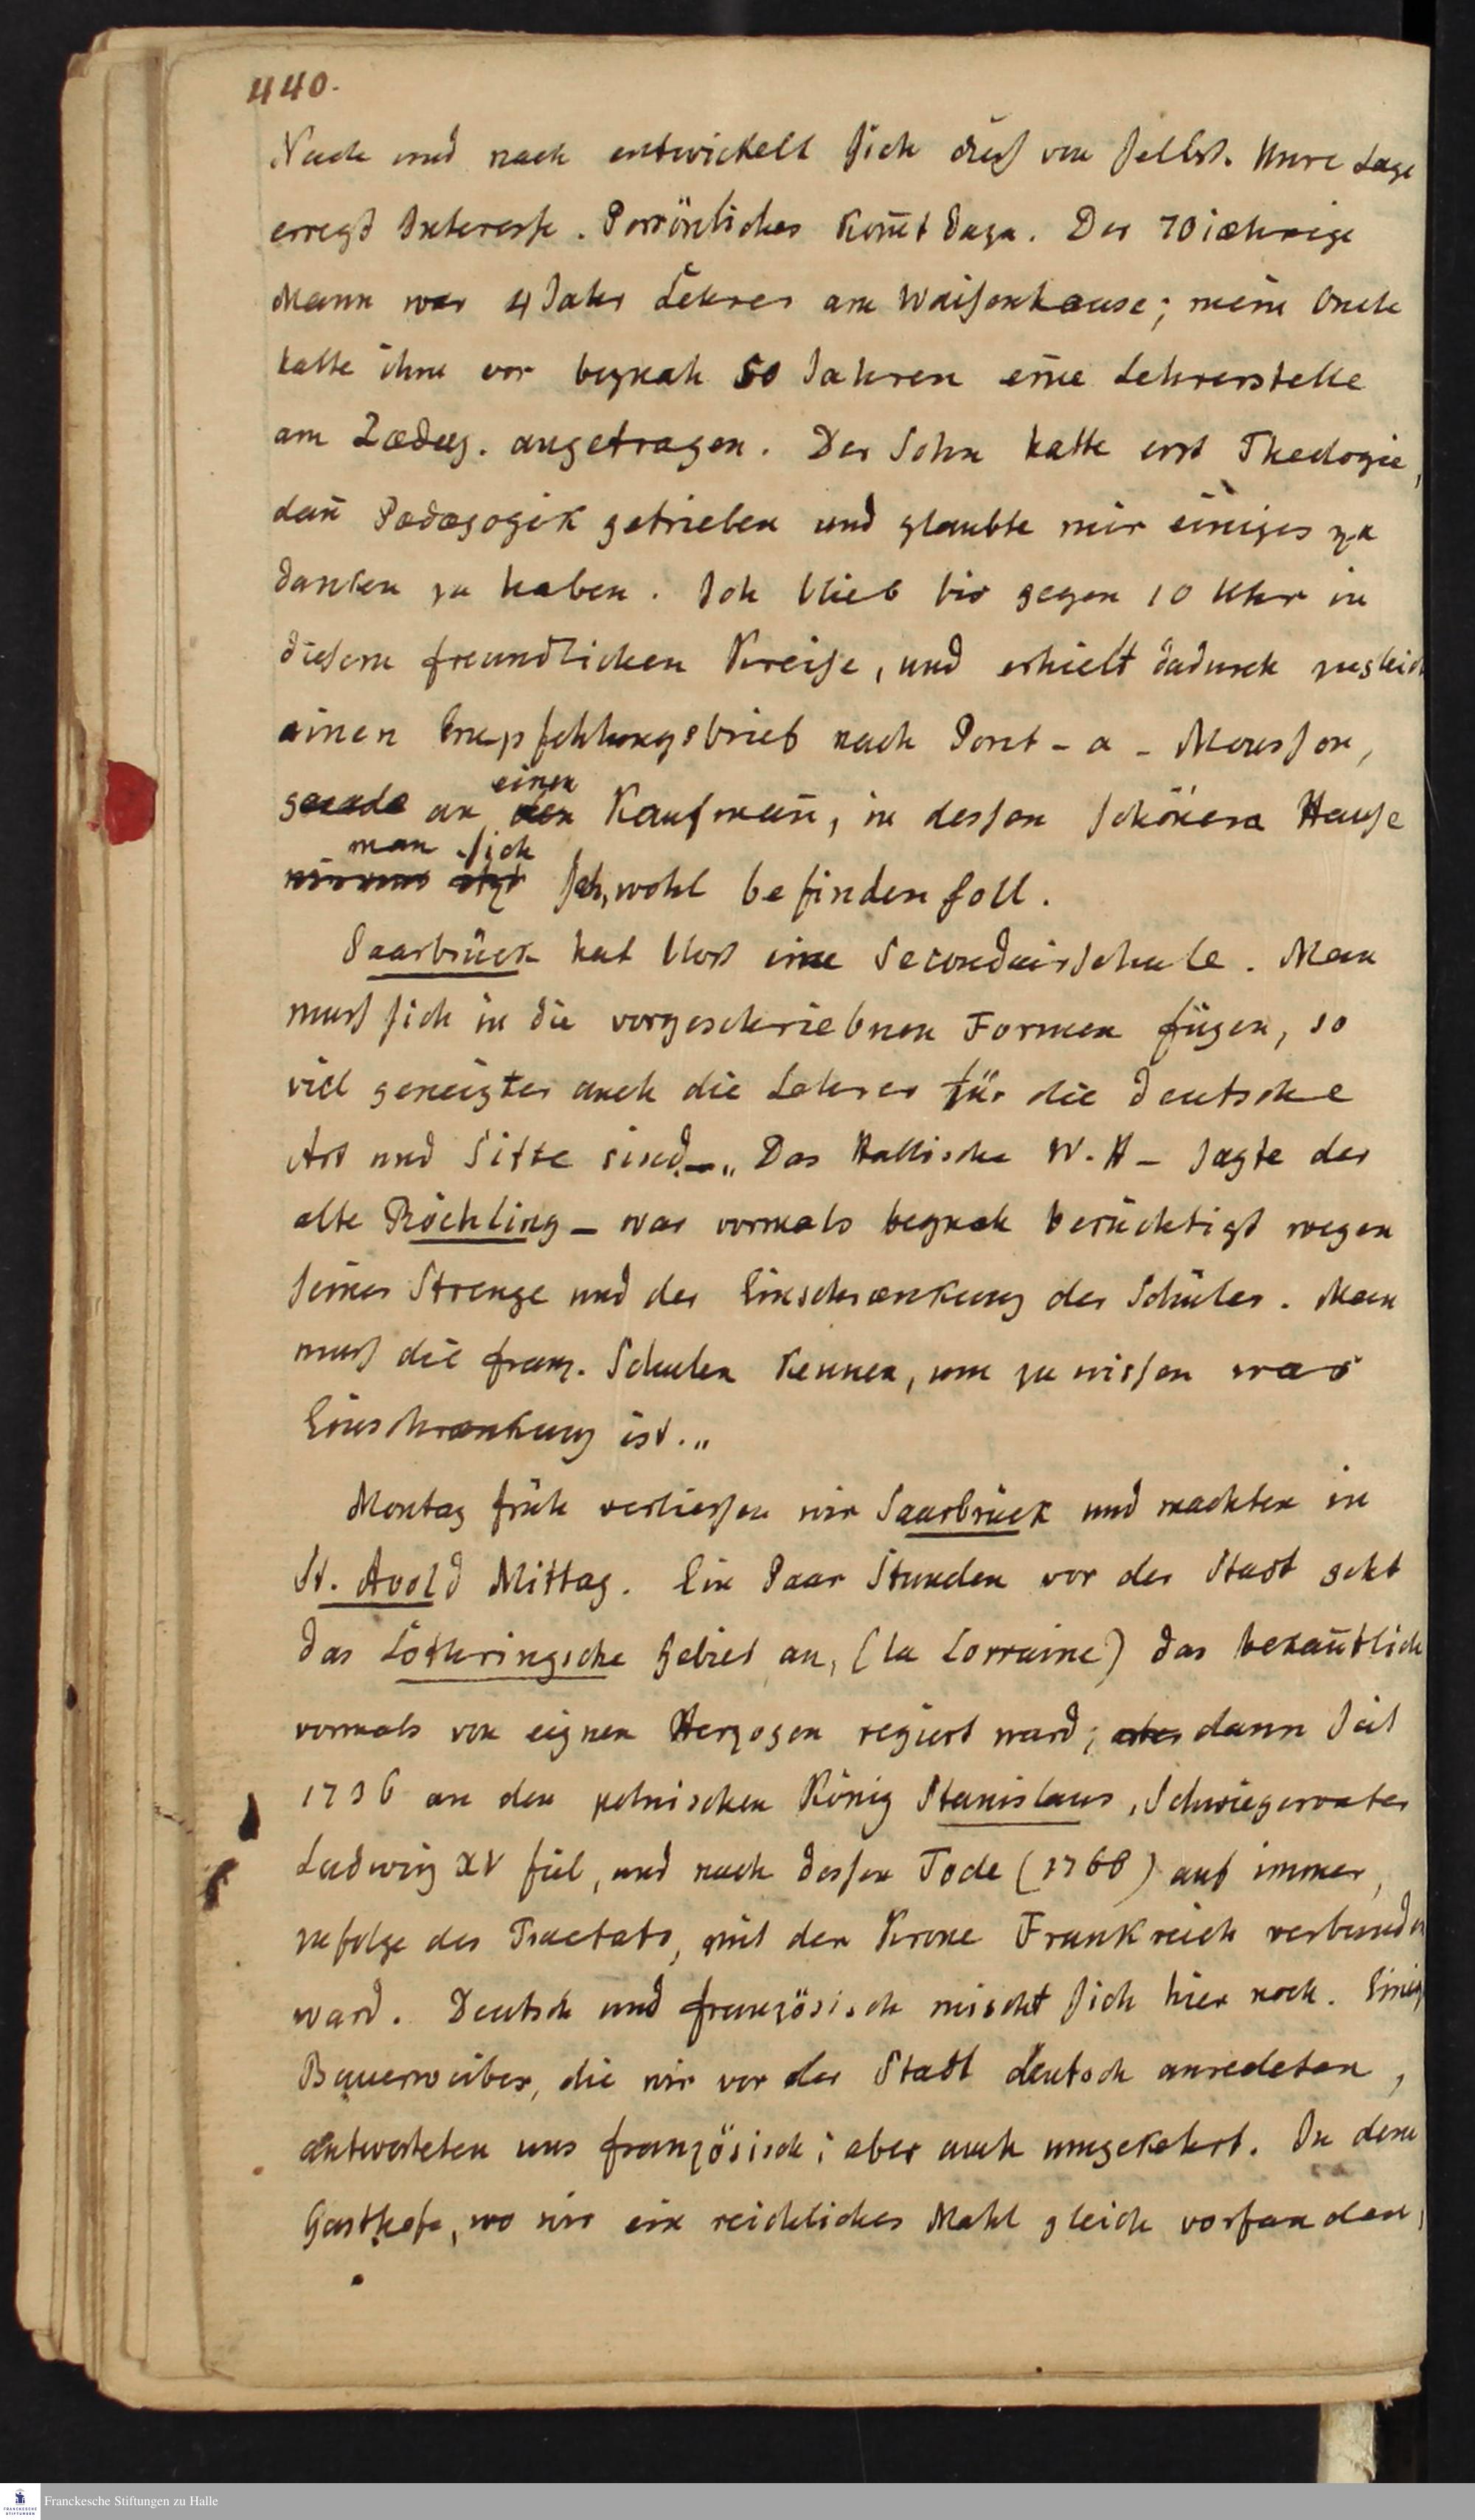 440.
Nach und nach entwickelt sich dieß von selbst. Unsre Lage
erregt Interesse. Persönliches kom̄t dazu. Der 70iæhrige
Mann war 4 Jahr Lehrer am Waisenhause; mein Onele
hatte ihm vor beynah 50 Jahren eine Lehrerstelle
am Pædag. angetragen. Der Sohn hatte erst Theologie,
dan̄ Pædagogik getrieben und glaubte mir einiges zu
danken zu haben. Ich blieb bis gegen 10 Uhr in
diesem freundlichen Kreise, und erhielt dadurch zugleich
einen Empfehlungsbrief nach Pont-a-Mousson,
gerade an den einen Kaufman̄, in dessen schönem Hause
wir uns itzt man sich sehr wohl befinden soll.
Saarbrück hat bloß eine Secondairschule. Man
muß sich in die vorgeschriebnen Formen fügen, so
viel geneigter auch die Lehrer für die deutsche
Art und Sitte sind. „Das Hallische W.H – sagte der
alte Röchling – war vormals beynah berüchtigt wegen
seiner Strenge und der Einschrænkung der Schüler. Man
muß die franz. Schulen kennen, um zu wissen was
Einschrænkung ist.„
Montag früh verliessen wir Saarbrück und machten in
St. Avold Mittag. Ein Paar Stunden vor der Stadt geht
das Lothringsche Gebiet an, (la Lorraine) das bekan̄tlich
vormals von eignen Herzogen regiert ward; dann seit
1736 an den polnischen König Stanislaus, Schwiegervater
Ludwig XV fiel, und nach dessen Tode (1766) auf immer,
zufolge des Tractats, mit der Krone Frankreich verbunden
ward. Deutsch und französisch mischt sich hier noch. Einige
Bauerweiber, die wir vor der Stadt deutsch anredeten,
antworteten uns französisch; aber auch umgekehrt. In dem
Gasthofe, wo wir ein reichliches Mahl gleich vorfanden,
Franckesche Stiftungen zu Halle